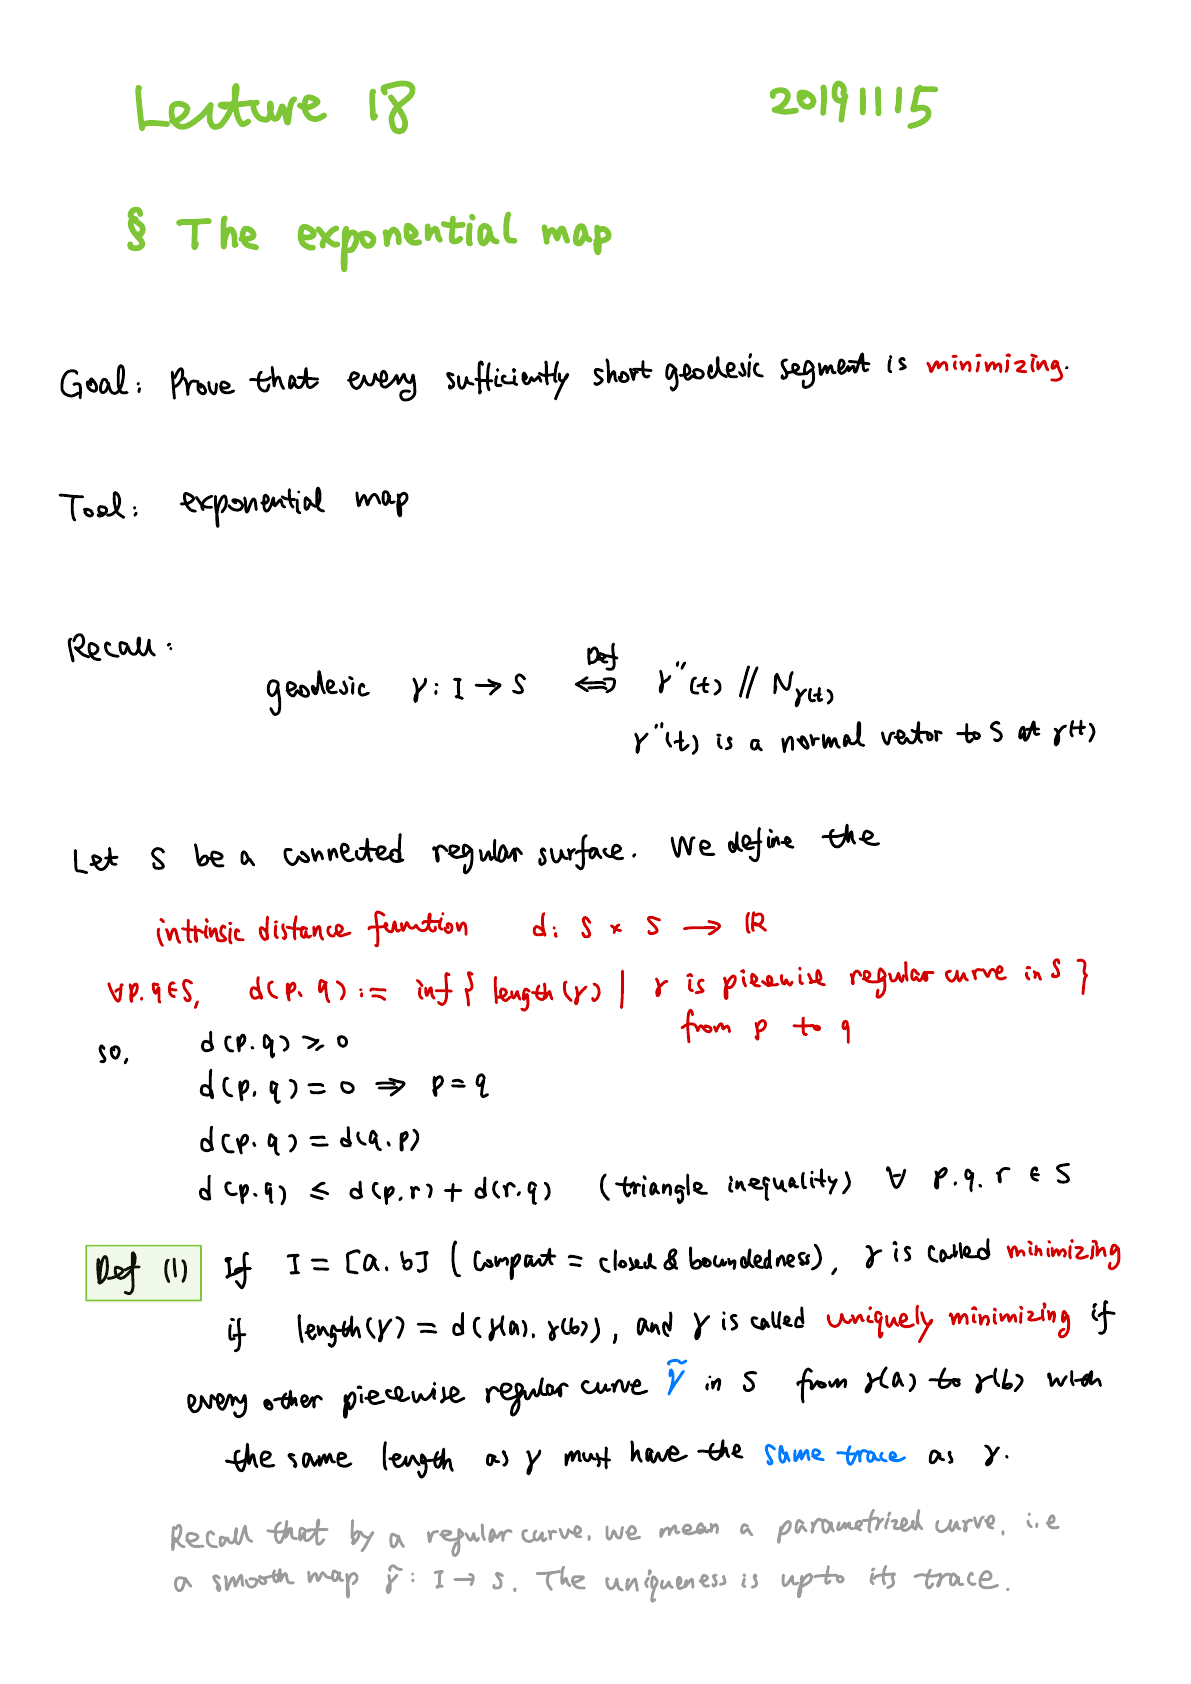 Lecture 18 20191115
§ The exponential map
Goal: Prove that every sufficiently short geodesic segment is minimizing.
Tool: exponential map
Recall:
Def
geodesic γ: I → S ⟺ γ''(t) // N_γ(t)
γ''(t) is a normal vector to S at γ(t)
Let S be a connected regular surface. We define the
intrinsic distance function d: S × S → ℝ
∀p.q∈S, d(p.q) := inf { length(γ) | γ is piecewise regular curve in S }
from p to q
so, d(p.q) ⩾ 0
d(p.q) = 0 ⇒ p = q
d(p.q) = d(q.p)
d(p.q) ≤ d(p.r) + d(r.q) (triangle inequality) ∀ p.q.r ∈ S
Def (1) If I = [a.b] (compact = closed & boundedness), γ is called minimizing
if length(γ) = d(γ(a).γ(b)), and γ is called uniquely minimizing if
every other piecewise regular curve γ̃ in S from γ(a) to γ(b) with
the same length as γ must have the same trace as γ.
Recall that by a regular curve. we mean a parametrized curve. i.e
a smooth map γ̃: I → S. The uniqueness is up to its trace.